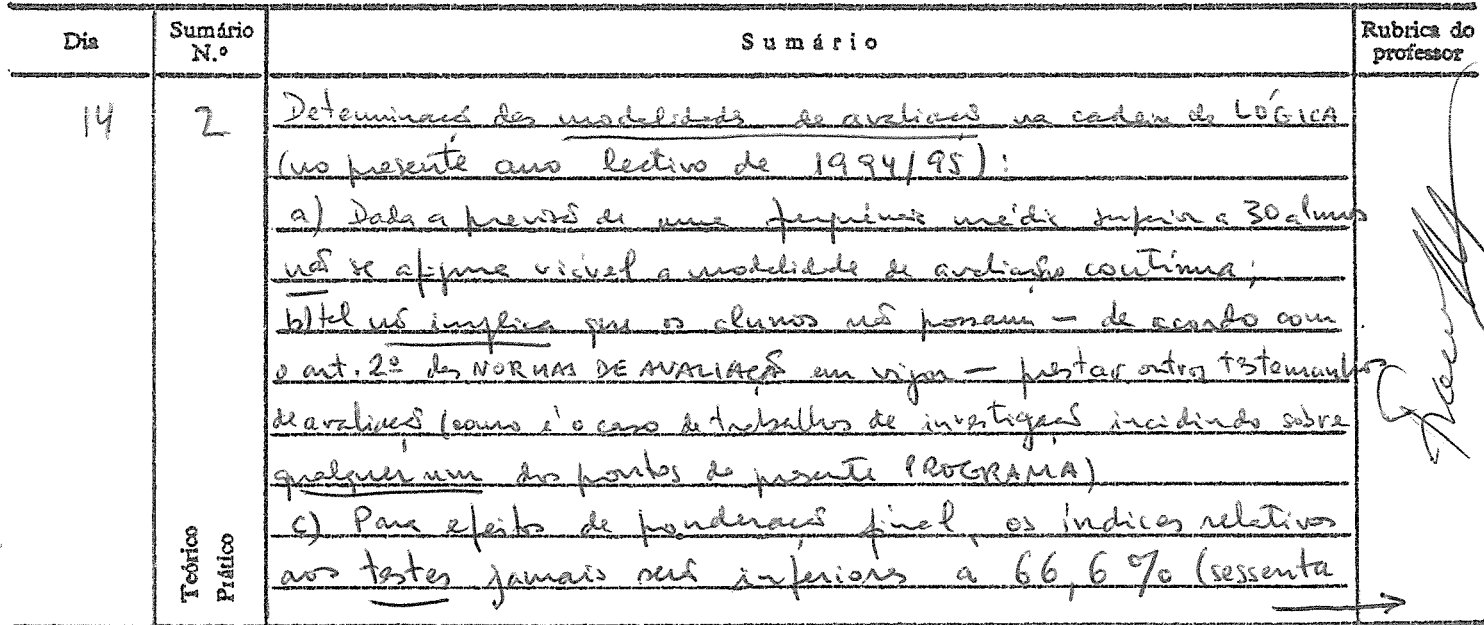 Dia
Sumário N.º
Sumário
Rubrica do professor
14
2
Determinação das modalidades de avaliação na cadeira de LÓGICA
(no presente ano lectivo de 1994/95):
a) Dada a previsão de uma frequência média superior a 30 alunos
não se afigura viável a modalidade de avaliação contínua;
b) tal não implica que os alunos não possam — de acordo com
o art. 2º das NORMAS DE AVALIAÇÃO em vigor — prestar outros testemunhos
de avaliação (como é o caso de trabalhos de investigação incidindo sobre
qualquer um dos pontos do presente PROGRAMA)
c) Para efeitos de ponderação final, os índices relativos
aos testes jamais serão inferiores a 66,6 % (sessenta
Teórico
Prático